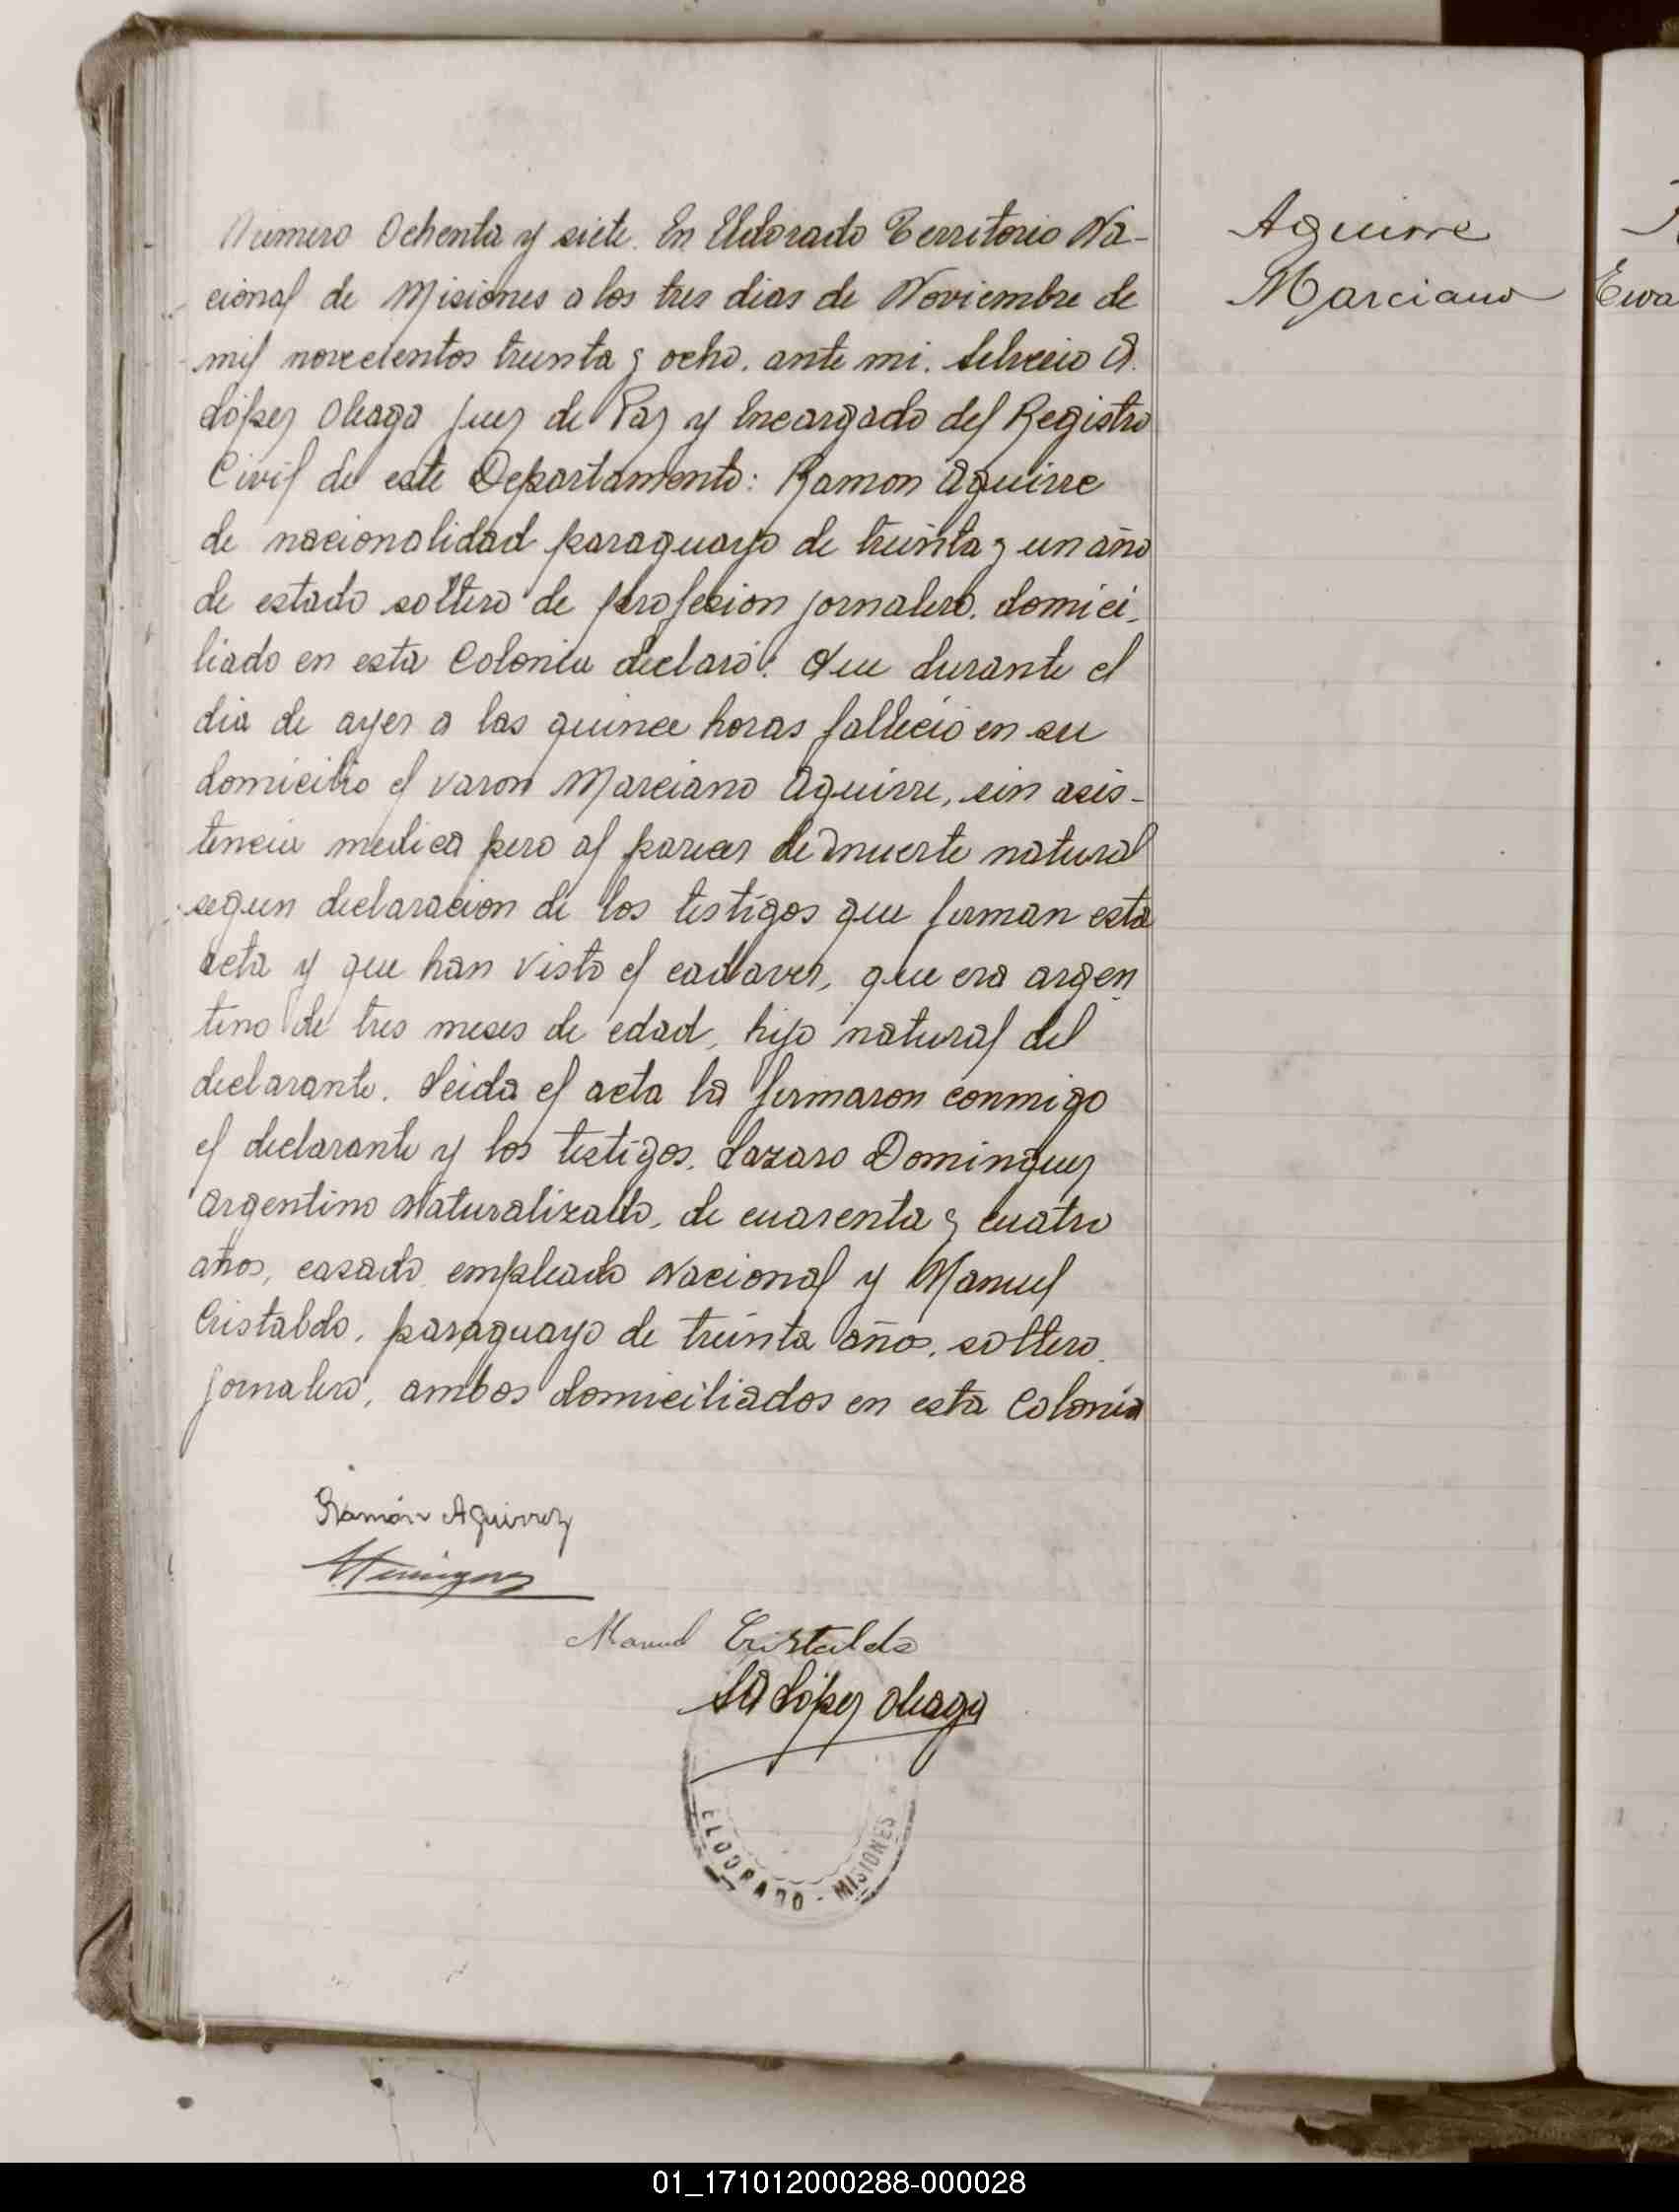 Numero Ochenta y siete. En Eldorado Territorio Na-
cional de Misiones a los tres dias de Noviembre de
mil novecientos treinta y ocho. ante mi. Silverio A.
López Oleaga Juez de Paz y Encargado del Registro
Civil de este Departamento: Ramon Aguirre
de nacionalidad paraguayo de treinta y un año
de estado soltero de profesion jornalero. domici-
liado en esta Colonia declaró: Que durante el
dia de ayer a las quince horas fallecio en su
domicilio el varon Marciano Aguirre, sin asis-
tencia medica pero al parecer de muerte natural
segun declaracion de los testigos que firman esta
acta y que han visto el cadaver, que era argen-
tino de tres meses de edad, hijo natural del
declarante. Leida el acta la firmaron conmigo
el declarante y los testigos. Lazaro Dominguez
argentino naturalizado, de cuarenta y cuatro
años, casado empleado Nacional y Manuel
Cristaldo, paraguayo de treinta años. soltero.
jornalero, ambos domiciliados en esta Colonia
Ramón Aguirrez
Manuel Cristaldo
SA López Oleaga
ELDORADO - MISIONES
Aguirre
Marciano
Ewa
01_171012000288-000028